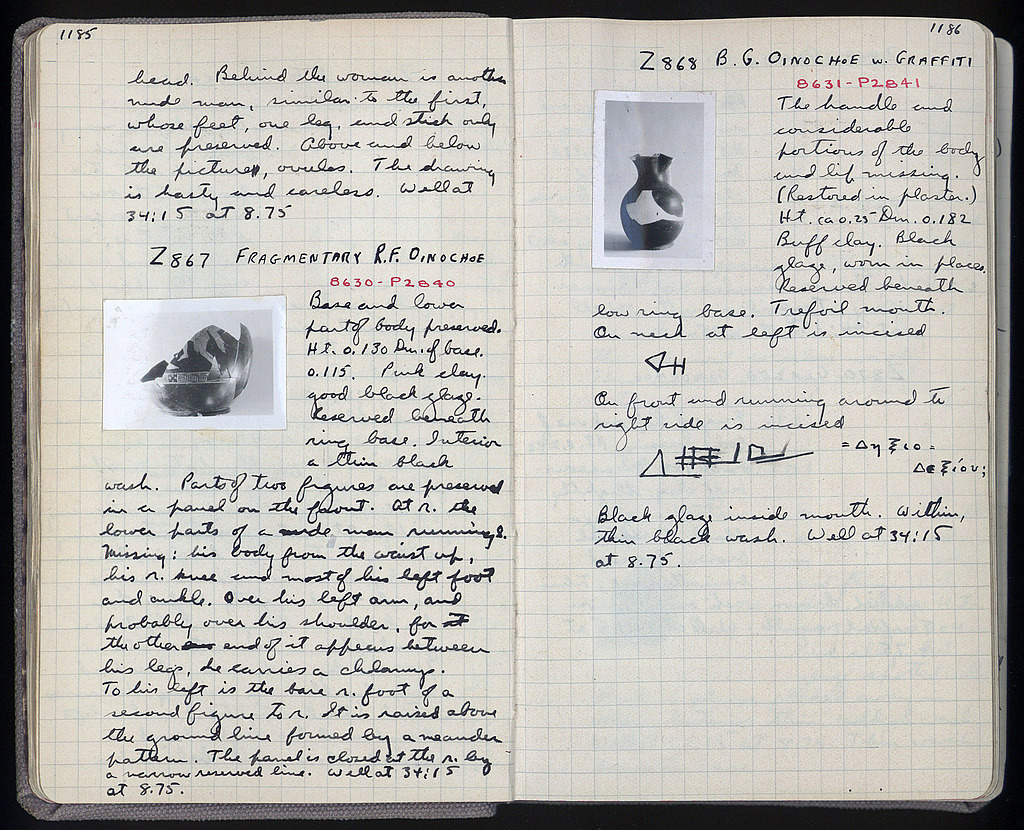 1185
head. Behind the woman is another
nude man, similar to the first,
whose feet, one leg, and stick only
are preserved. Above and below
the picture, ovules. The drawing
is hasty and careless. Well at
34:15 at 8.75
Z867 FRAGMENTARY R.F. OINOCHOE
8630-P2840
Base and lower
part of body preserved.
Ht. 0.130 Dm. of base.
0.115. Pink clay.
good black glaze.
Reserved beneath
ring base. Interior
a thin black
wash. Parts of two figures are preserved
in a panel on the front. At r. the
lower parts of a nude man running
Missing: his body from the waist up,
his r. knee and most of his left foot
and ankle. Over his left arm, and
probably over his shoulder, for
the other end of it appears between
his legs, he carries a chlamys.
To his left is the bare r. foot of a
second figure to r. It is raised above
the ground line formed by a meander
pattern. The panel is closed at the r. by
a narrow reserved line. Well at 34:15
at 8.75.
1186
Z868 B.G. OINOCHOE W. GRAFFITI
8631-P2841
The handle and
considerable
portions of the body
and lip missing.
(Restored in plaster.)
Ht. ca 0.25 Dm. 0.182
Buff clay. Black
glaze, worn in places.
Reserved beneath
low ring base. Trefoil mouth.
On neck at left is incised
On front and running around to
right side is incised
= Δηξιο =
Δεξίου;
Black glaze inside mouth. Within,
thin black wash. Well at 34:15
at 8.75.